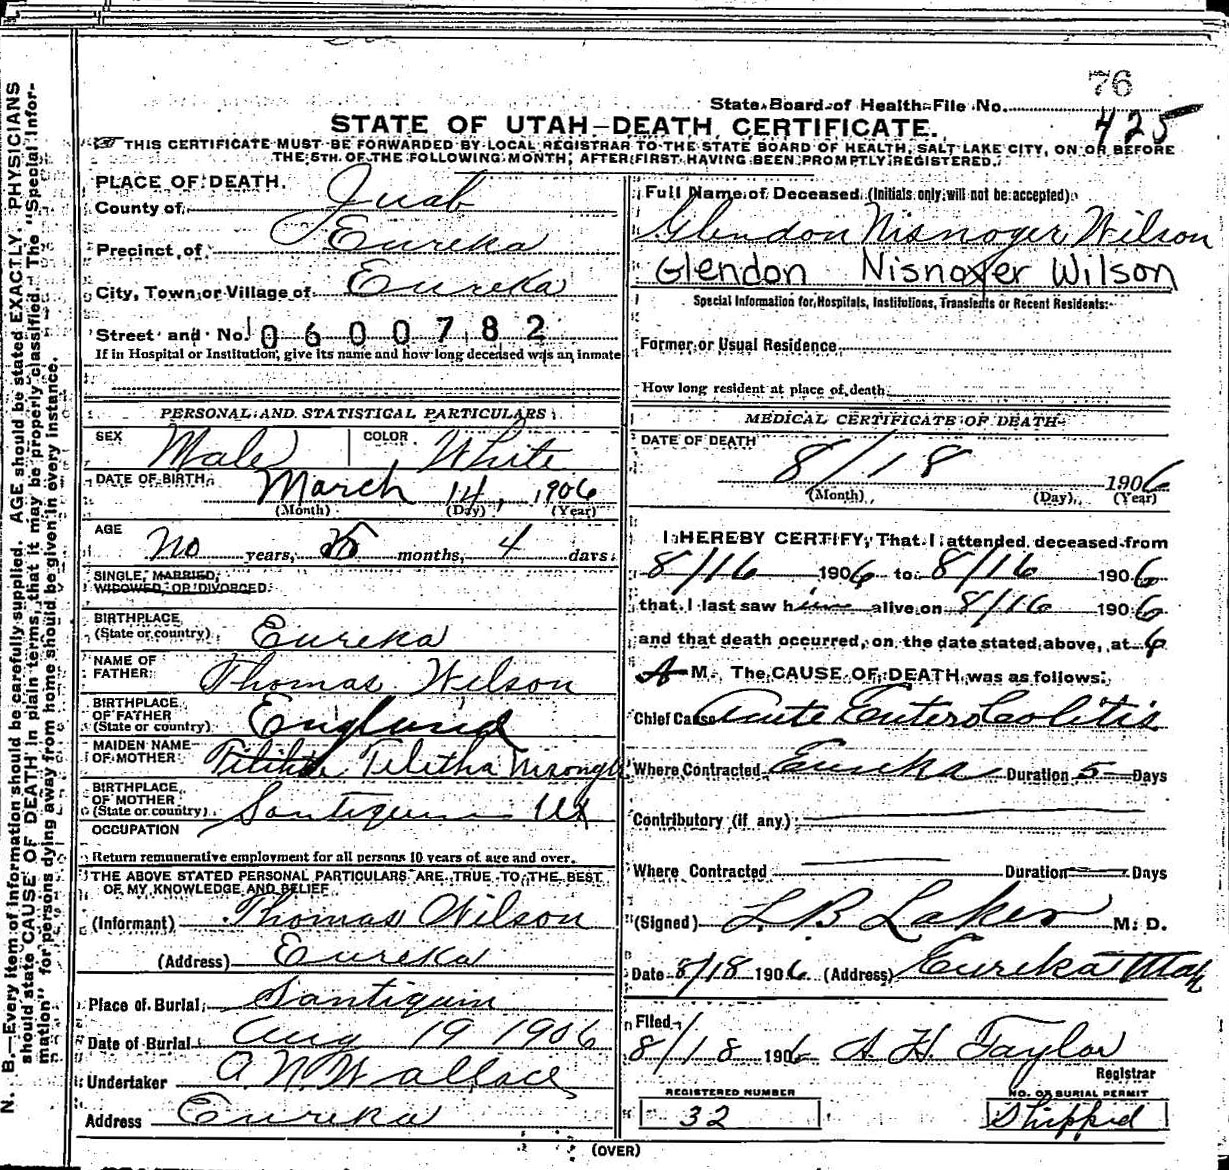 76
State Board of Health File No. 425
STATE OF UTAH—DEATH CERTIFICATE.
THIS CERTIFICATE MUST BE FORWARDED BY LOCAL REGISTRAR TO THE STATE BOARD OF HEALTH, SALT LAKE CITY, ON OR BEFORE
THE 5TH OF THE FOLLOWING MONTH, AFTER FIRST HAVING BEEN PROMPTLY REGISTERED.
PLACE OF DEATH.
County of Juab
Precinct of Eureka
City, Town or Village of Eureka
Street and No. 0600782
If in Hospital or Institution, give its name and how long deceased was an inmate
PERSONAL AND STATISTICAL PARTICULARS
SEX Male COLOR White
DATE OF BIRTH March 14, 1906
(Month) (Day) (Year)
AGE No years, 5 months, 4 days
SINGLE, MARRIED,
WIDOWED, OR DIVORCED
BIRTHPLACE
(State or country) Eureka
NAME OF
FATHER Thomas Wilson
BIRTHPLACE
OF FATHER
(State or country) England
MAIDEN NAME
OF MOTHER Telitha
BIRTHPLACE
OF MOTHER
(State or country) Santiquin Ut
OCCUPATION
Return remunerative employment for all persons 10 years of age and over.
THE ABOVE STATED PERSONAL PARTICULARS ARE TRUE TO THE BEST
OF MY KNOWLEDGE AND BELIEF
(Informant) Thomas Wilson
(Address) Eureka
Place of Burial Santiquin
Date of Burial Aug 19 1906
Undertaker A N Wallace
Address Eureka
Full Name of Deceased (Initials only will not be accepted)
Glendon Nisnoger Wilson
Glendon Nisnoyer Wilson
Special Information for Hospitals, Institutions, Transients or Recent Residents:
Former or Usual Residence
How long resident at place of death
MEDICAL CERTIFICATE OF DEATH
DATE OF DEATH
8/18 1906
(Month) (Day) (Year)
I HEREBY CERTIFY, That I attended deceased from
8/16 1906 to 8/16 1906
that I last saw him alive on 8/16 1906
and that death occurred, on the date stated above, at 6
A M. The CAUSE OF DEATH was as follows:
Chief Cause Acute Entero Colitis
Where Contracted Eureka Duration 5 Days
Contributory (if any)
Where Contracted Duration Days
(Signed) L B Laker M. D.
Date 8/18 1906 (Address) Eureka Utah
Filed
8/18 1906 A H Taylor
Registrar
REGISTERED NUMBER
32
NO. OF BURIAL PERMIT
Shipped
(OVER)
N. B.—Every item of information should be carefully supplied. AGE should be stated EXACTLY. PHYSICIANS
should state CAUSE OF DEATH in plain terms, that it may be properly classified. The "Special Infor-
mation" for persons dying away from home should be given in every instance.